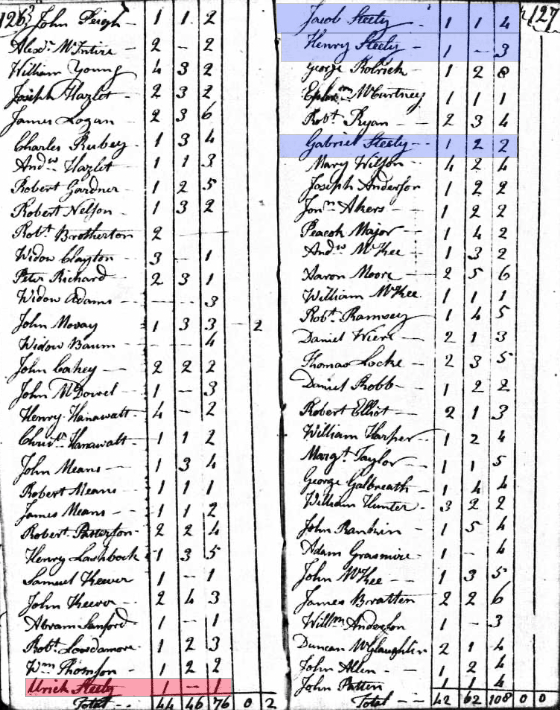 126 John Leigh 1 1 2
Alexr McIntire 2 - 2
William Young 4 3 2
Joseph Hazlet 2 3 2
James Logan 2 3 6
Charles Rubey 1 3 4
Andw Hazlet 1 1 3
Robert Gardner 1 2 5
Robert Nelson 1 3 2
Robt Brotherton 2
Widow Clayton 3 - 1
Peter Richard 2 3 1
Widow Adams - - 3
John Movay 1 3 3 2
Widow Baum - - 4
John Cahey 2 2 2
John McDowel 1 - 3
Henry Hanawatt 4 - 2
Christn Hanawatt 1 1 2
John Means 1 3 4
Robert Means 1 1 1
James Means 1 1 2
Robert Patterson 2 2 4
Henry Lashbock 1 3 5
Samuel Keever 1 - 1
John Keever 2 4 3
Abram Sanford 1 - 1
Robt Lowdamore 1 2 3
Wm Thomson 1 2 2
Urich Steely 1 - 1
Total 44 46 76 0 2
127
Jacob Steely 1 1 4
Henry Steely 1 - 3
George Rotrick 1 2 8
Ephrm McCurtney 1 1 1
Robt Ryan 2 3 4
Gabriel Steely 1 2 2
Mary Wilson 4 2 4
Joseph Anderson 1 2 2
Jonn Akers 1 2 2
Peacok Major 1 4 2
Andw McKee 1 3 2
Aaron Moore 2 5 6
William McKee 1 1 1
Robt Ramsey 1 4 5
Daniel Wier 2 1 3
Thomas Locke 2 3 5
Daniel Robb 1 2 2
Robert Elliot 2 1 3
William Harper 1 2 4
Margt Taylor 1 1 5
George Galbreath 1 4 4
William Hunter 3 2 2
John Rankin 1 5 4
Adam Grasmire 1 - 4
John McKee 1 3 5
James Bratten 2 2 6
Willm Anderson 1 - 3
Duncan McGlaughlin 2 1 4
John Allen 1 2 4
John Patten 1 1 4
Total 42 62 108 0 0